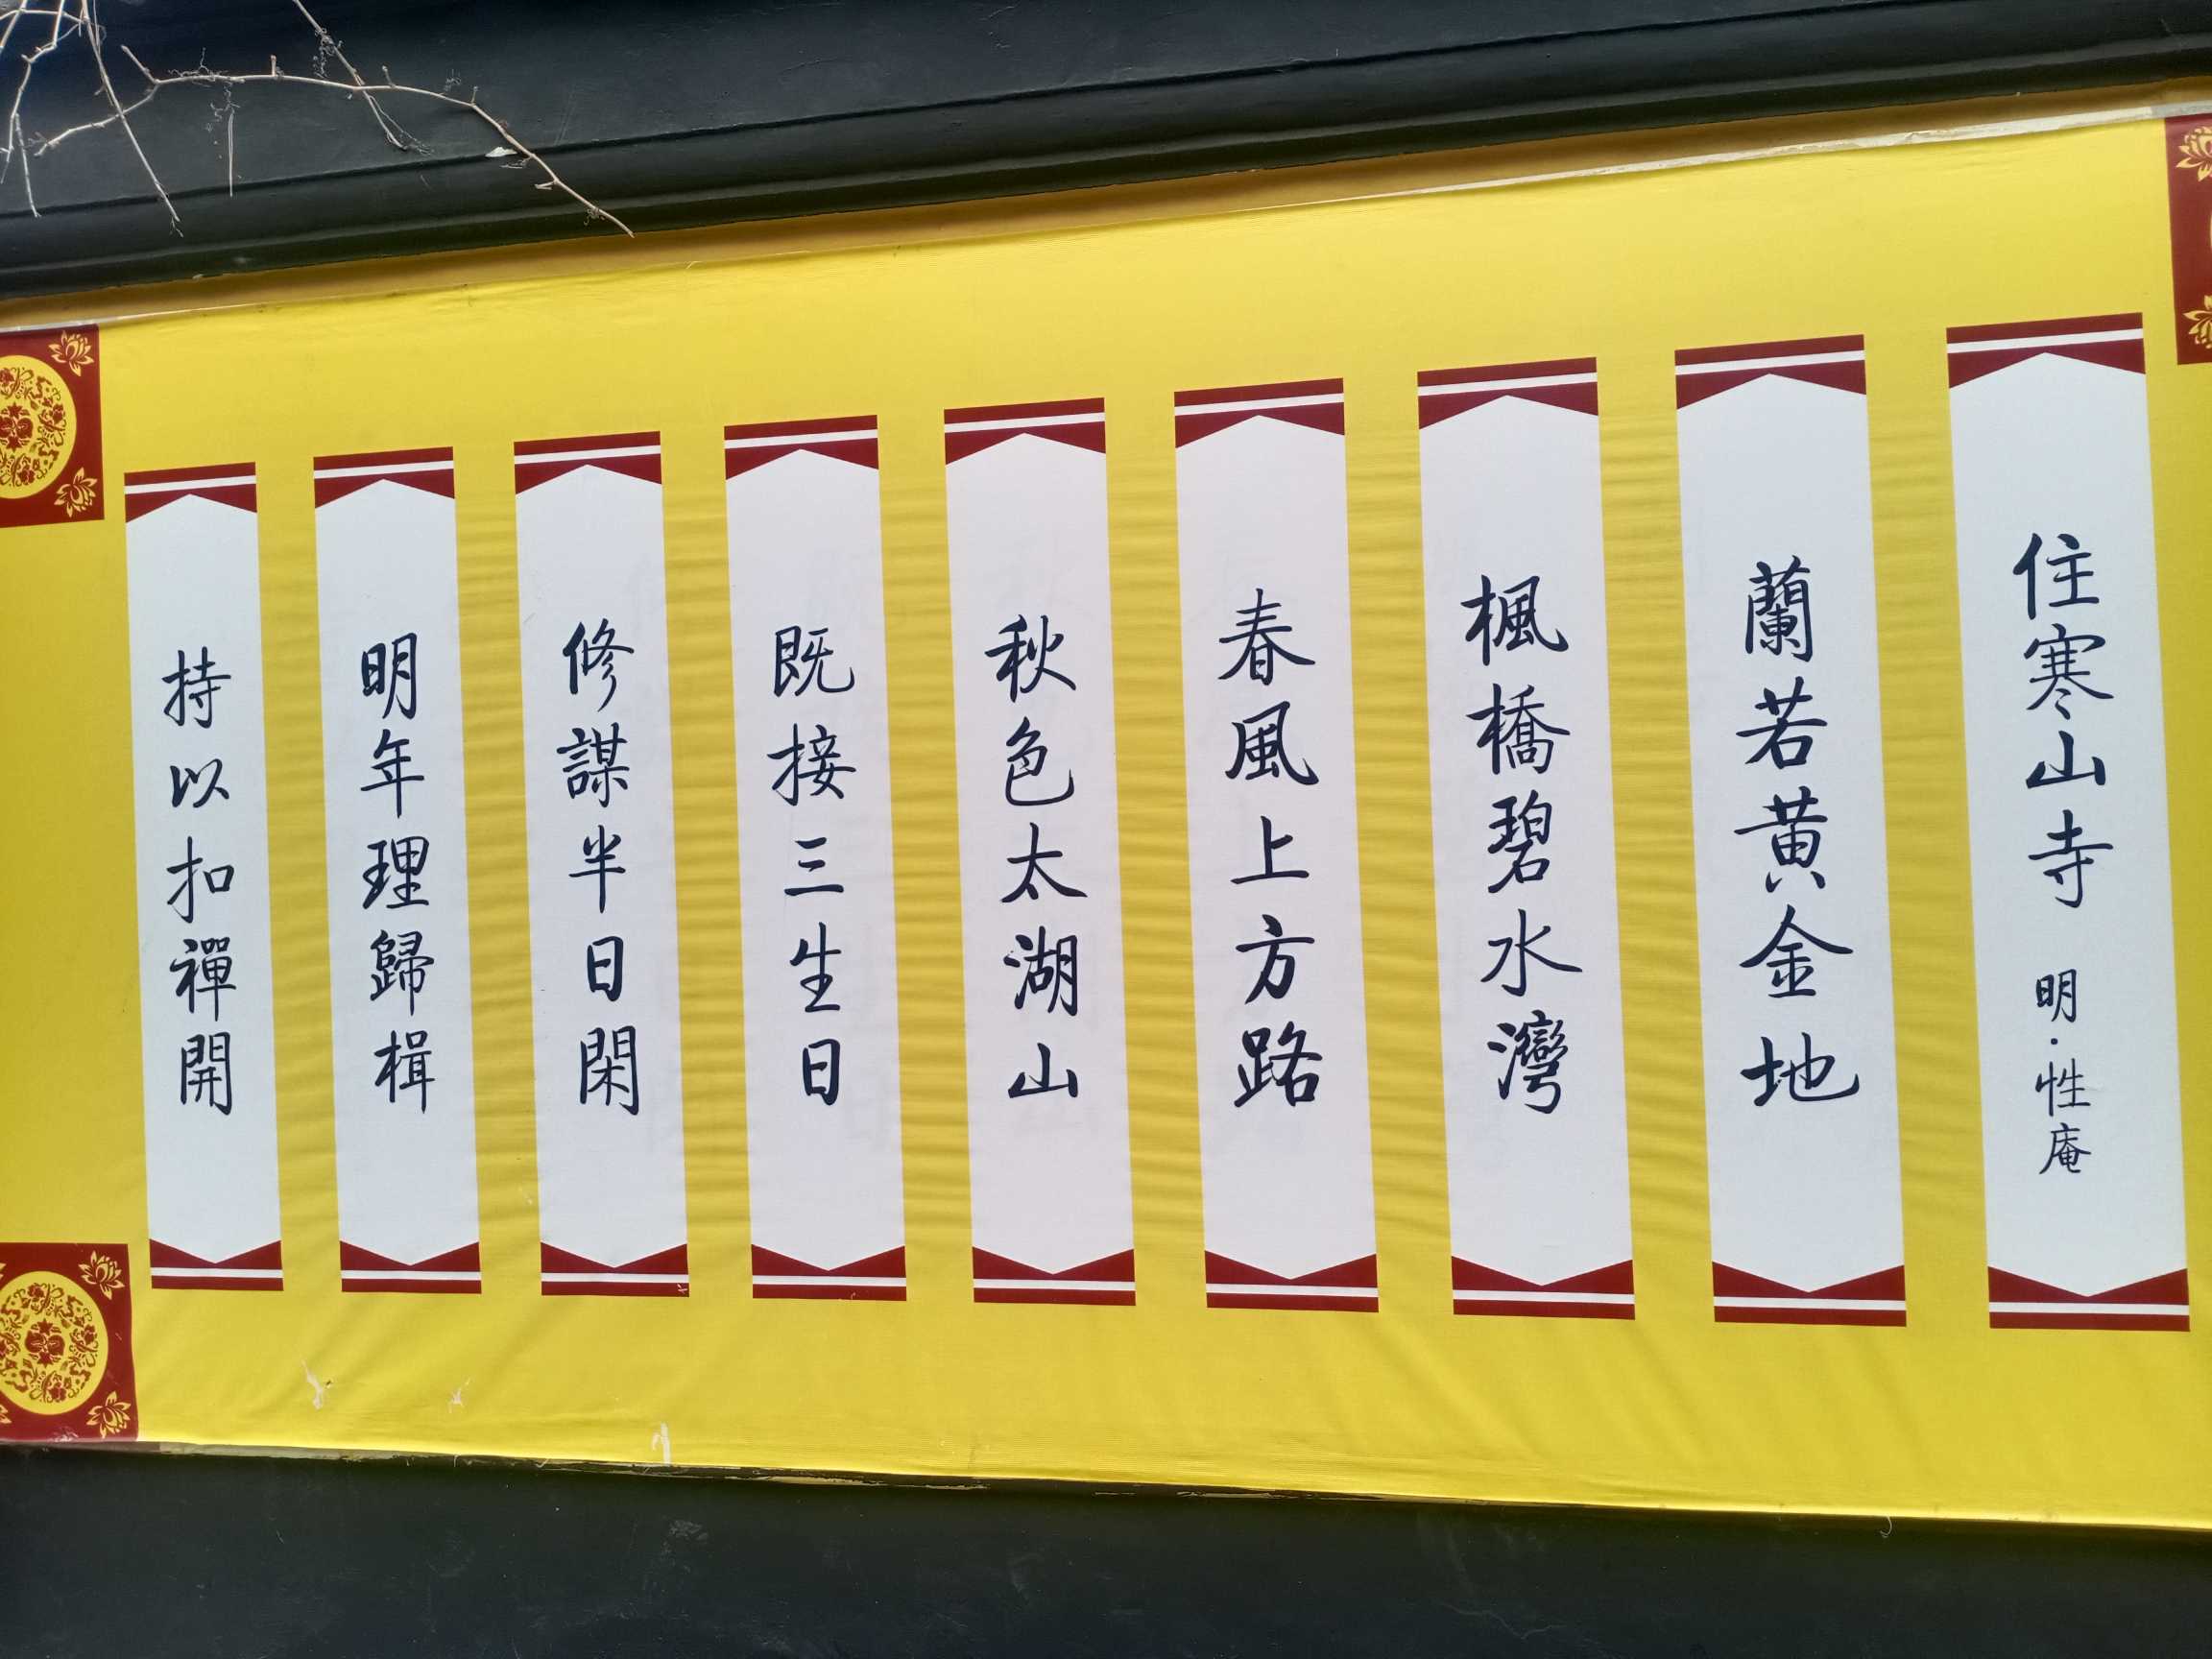 住寒山寺 明·性庵
蘭若黄金地
楓橋碧水灣
春風上方路
秋色太湖山
既接三生日
修謀半日閑
明年理歸楫
持以扣禪開